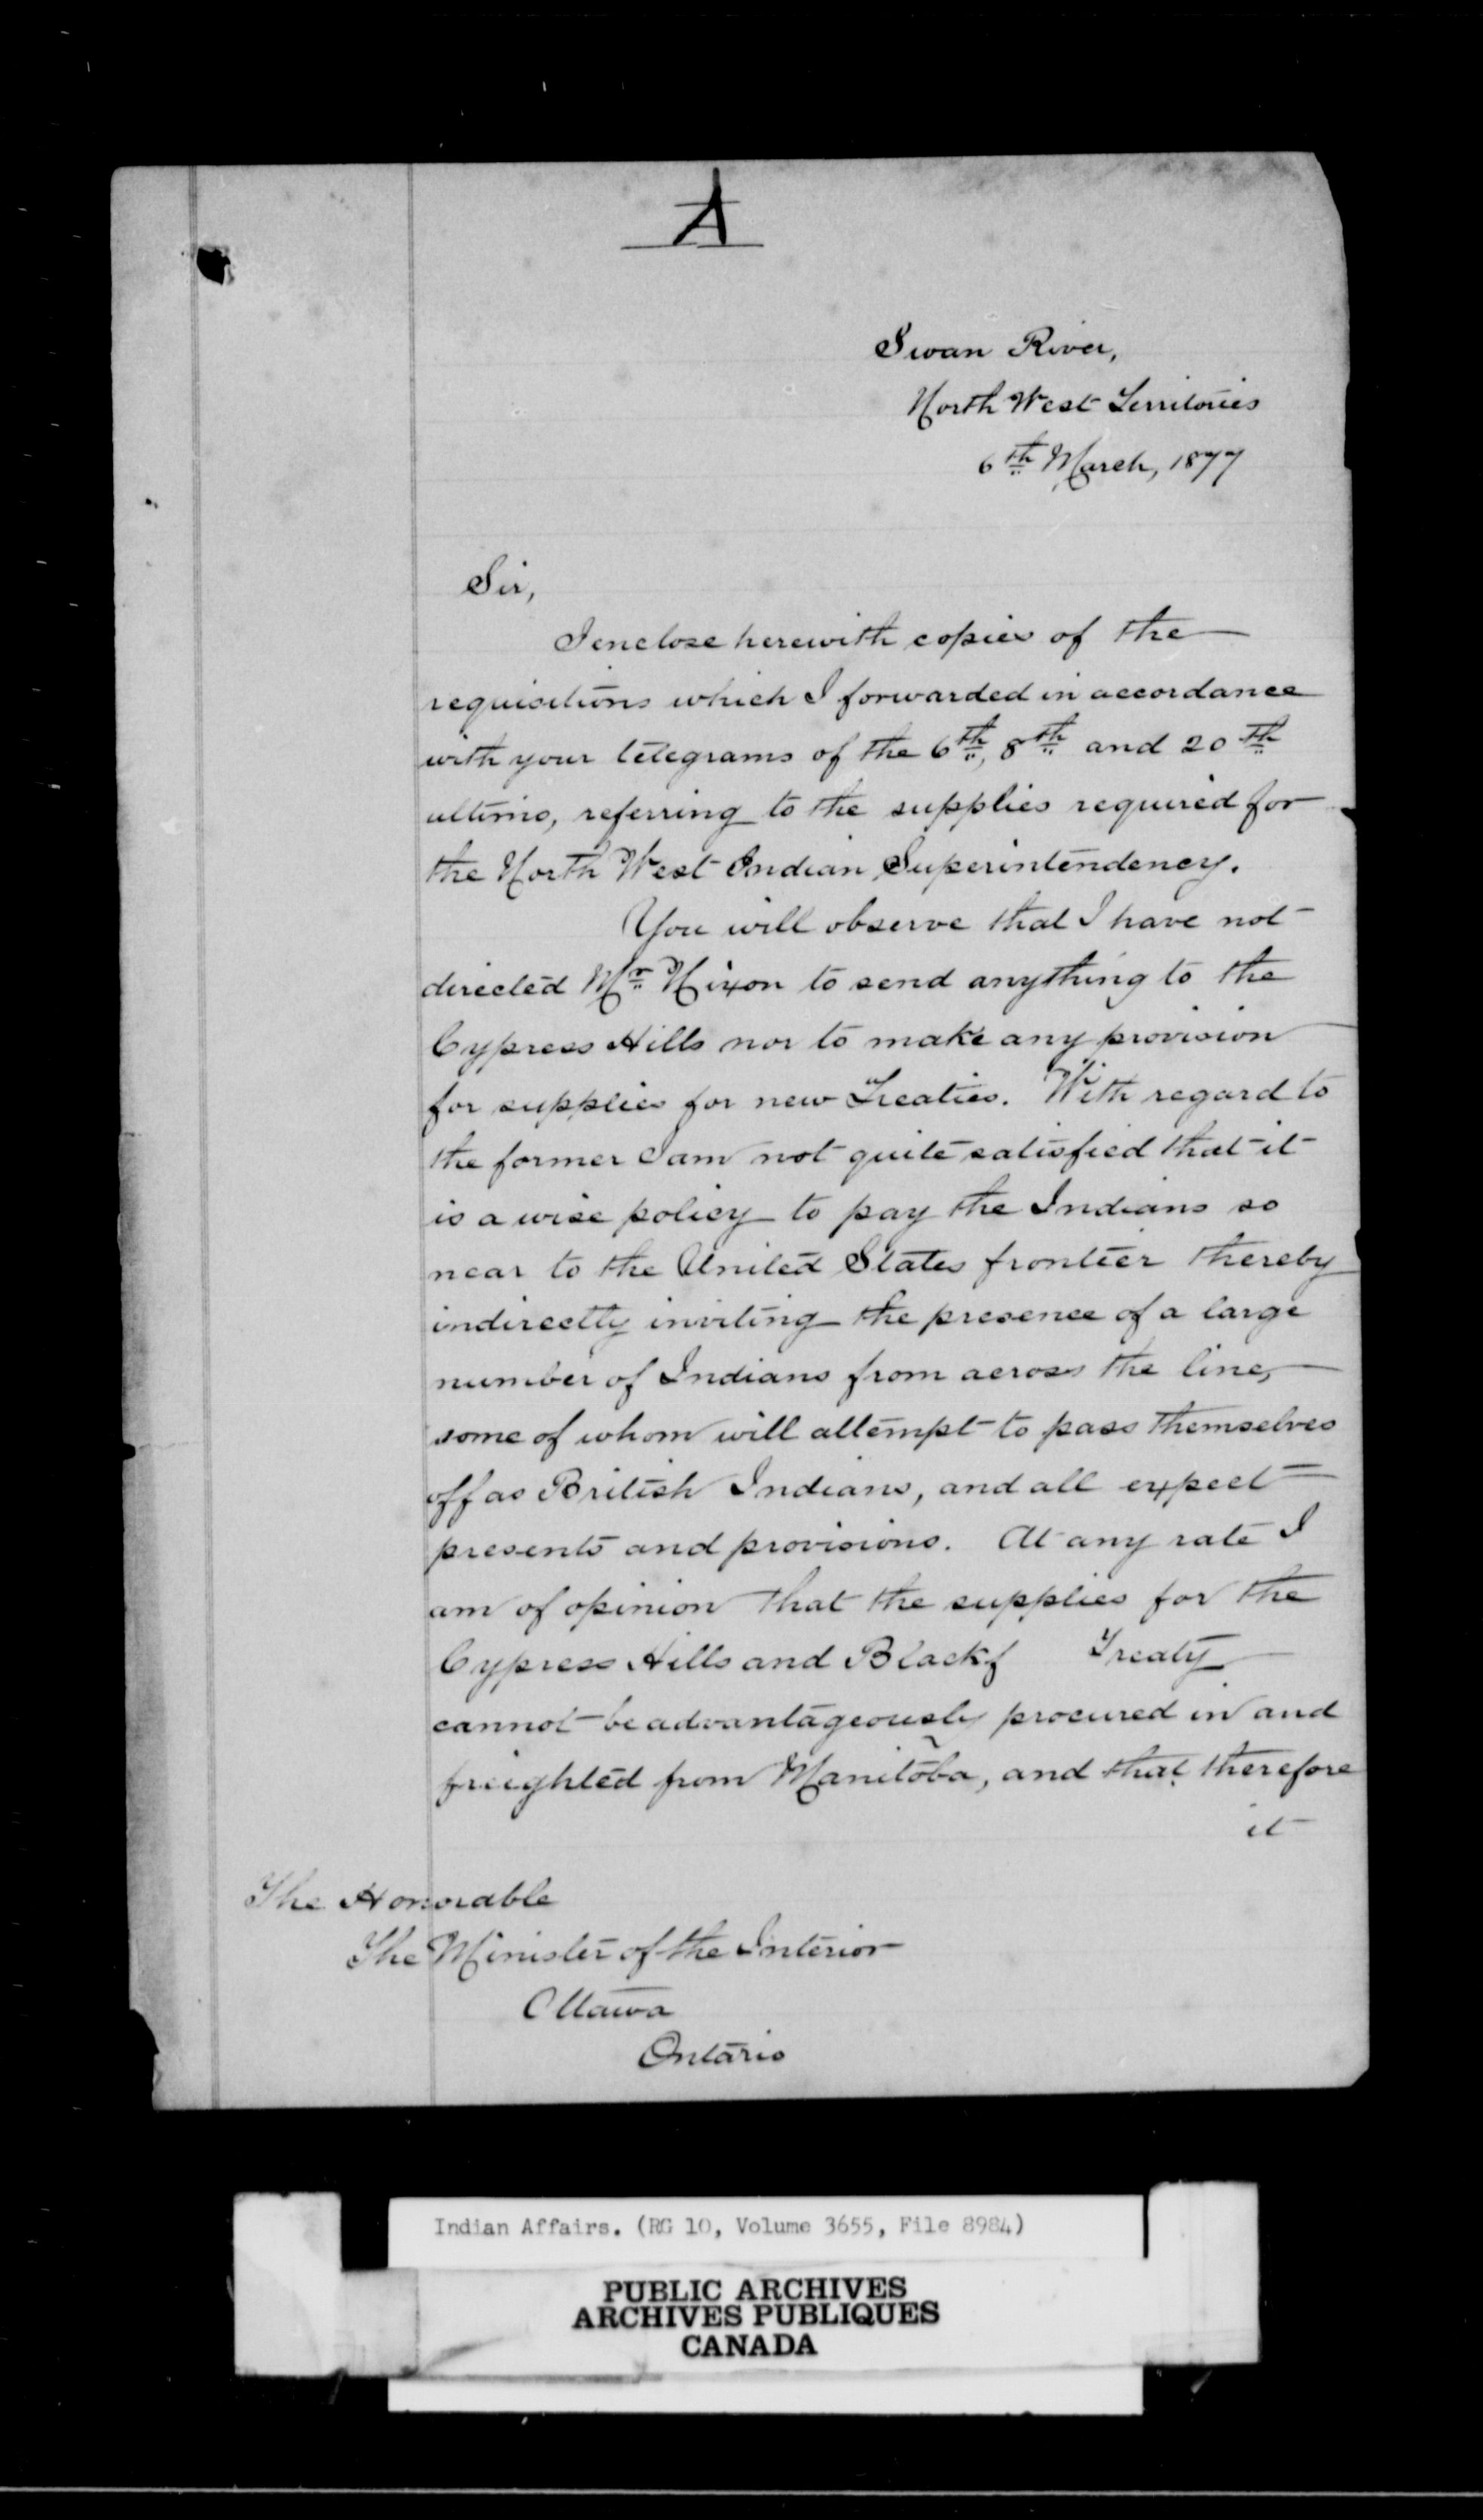 A
Swan River,
North West Territories
6th March, 1877
Sir,
I enclose herewith copies of the
requisitions which I forwarded in accordance
with your telegrams of the 6th, 8th and 20th
ultimo, referring to the supplies required for
the North West Indian Superintendency.
You will observe that I have not
directed Mr Nixon to send anything to the
Cypress Hills nor to make any provision
for supplies for new Treaties. With regard to
the former I am not quite satisfied that it
is a wise policy to pay the Indians so
near to the United States frontier thereby
indirectly inviting the presence of a large
number of Indians from across the line,
some of whom will attempt to pass themselves
off as British Indians, and all expect
presents and provisions. At any rate I
am of opinion that the supplies for the
Cypress Hills and Blackf Treaty
cannot be advantageously procured in and
freighted from Manitoba, and that therefore
it
The Honorable
The Minister of the Interior
Ottawa
Ontario
Indian Affairs. (RG 10, Volume 3655, File 8984)
PUBLIC ARCHIVES
ARCHIVES PUBLIQUES
CANADA